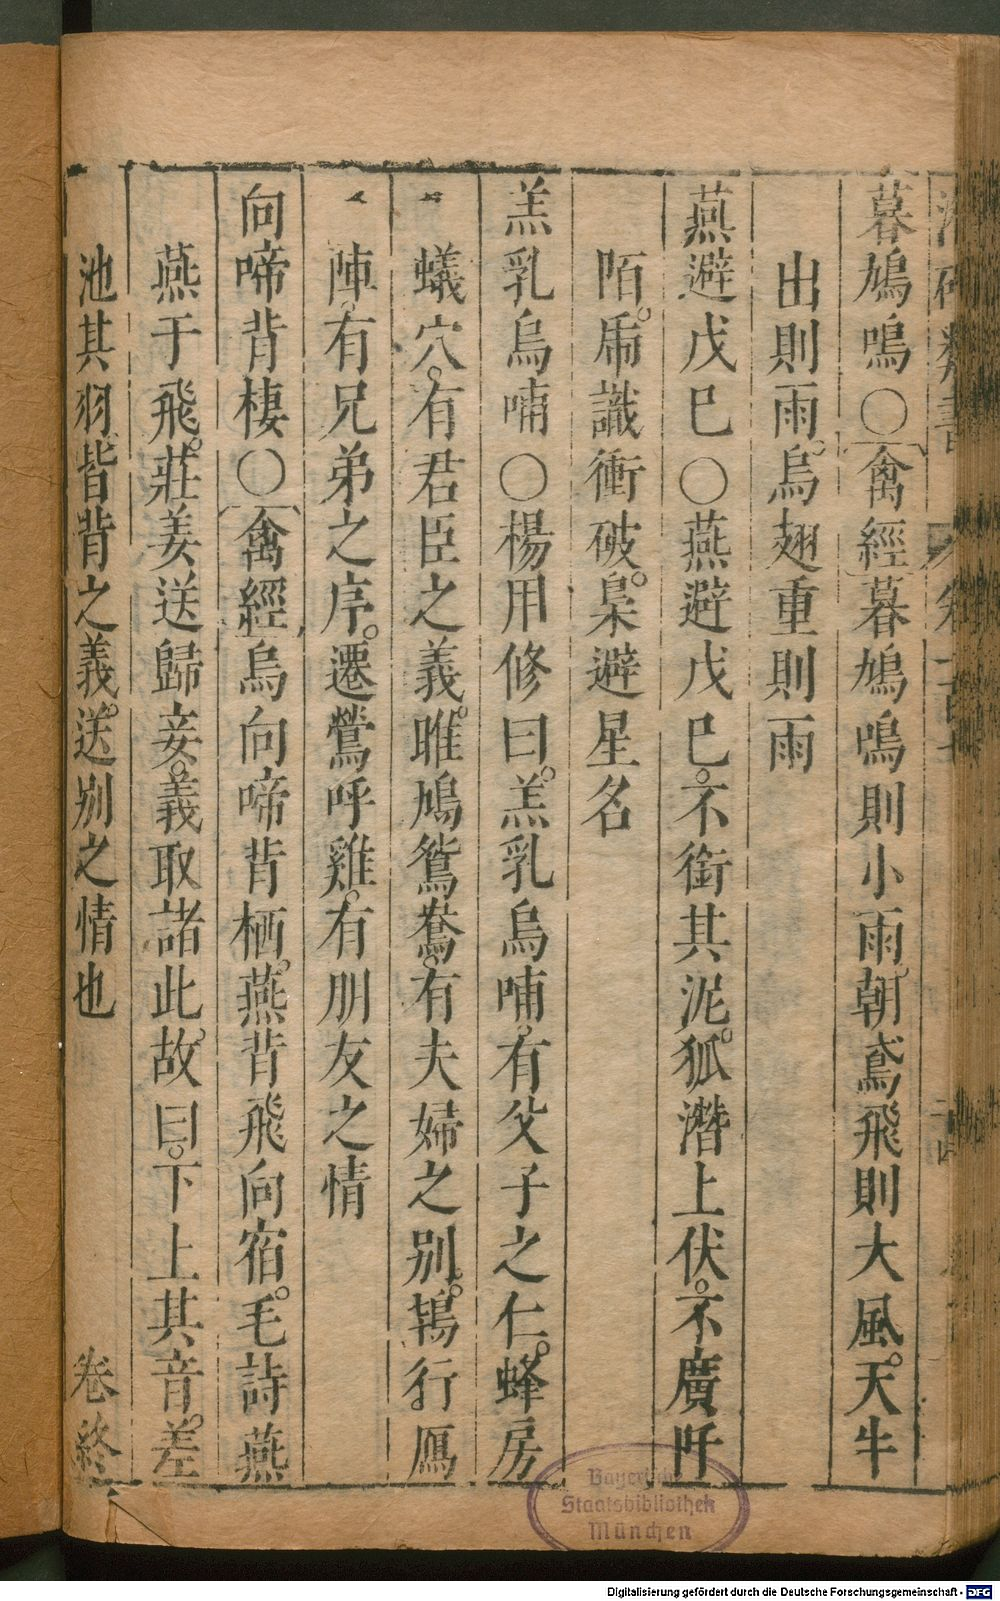 暮鳩鳴○禽經暮鳩鳴則小雨。朝鳶飛則大風。天牛
出則雨。烏翅重則雨
燕避戊巳○燕避戊巳。不銜其泥。狐潛上伏。不廣阡
陌。乕識衝破。梟避星名
羔乳烏哺○楊用修曰。羔乳烏哺。有父子之仁。蜂房
蟻穴。有君臣之義。雎鳩鴛鴦。有夫婦之別。鴇行鴈
陣。有兄弟之序。遷鶯呼雞。有朋友之情
向啼背棲○禽經烏向啼背栖。燕背飛向宿。毛詩燕
燕于飛。莊姜送歸妾。義取諸此。故曰。下上其音。差
池其羽。皆背之義。送別之情也
卷終
類書
Bayerische
Staatsbibliothek
München
Digitalisierung gefördert durch die Deutsche Forschungsgemeinschaft - DFG